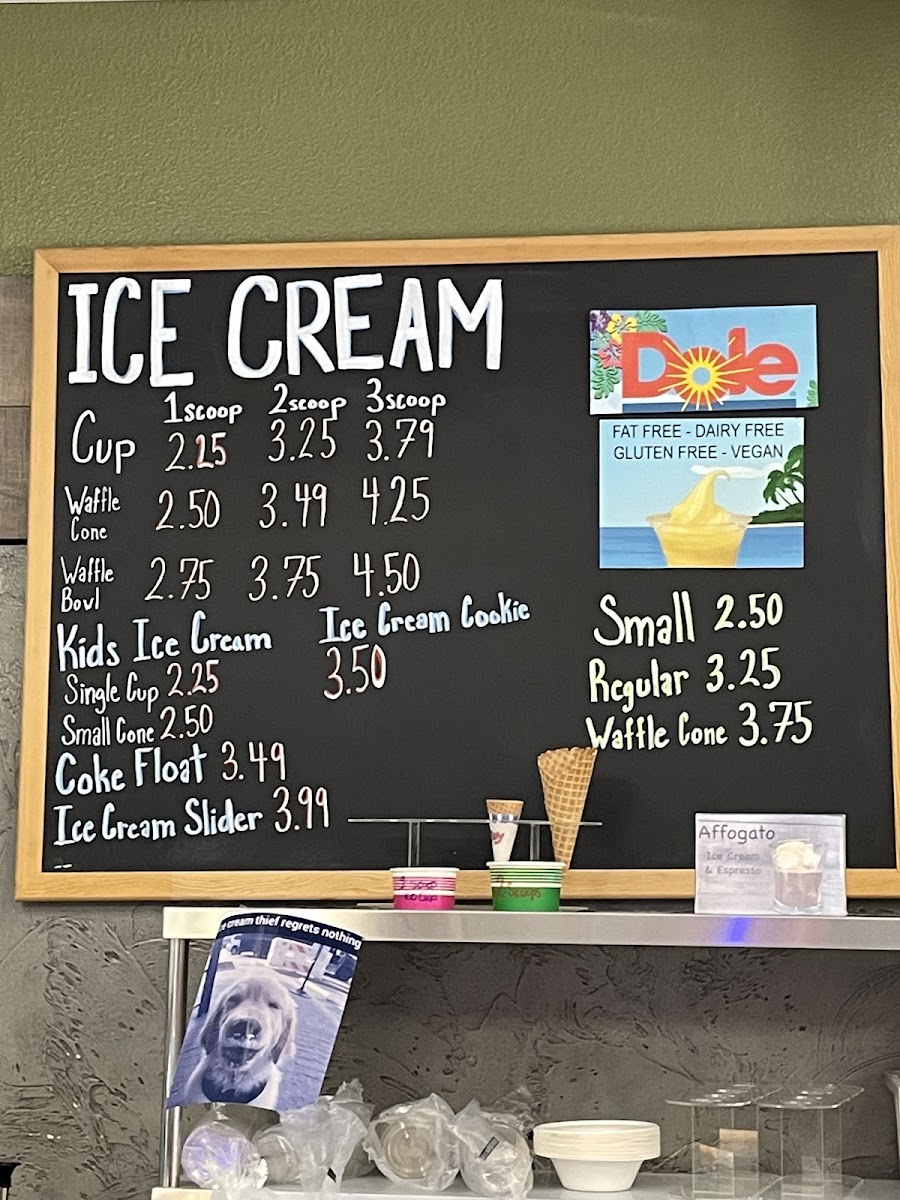 ICE CREAM
1 scoop 2 scoop 3 scoop
Cup 2.25 3.25 3.79
Waffle
Cone 2.50 3.49 4.25
Waffle
Bowl 2.75 3.75 4.50
Kids Ice Cream
Single Cup 2.25
Small Cone 2.50
Coke Float 3.49
Ice Cream Slider 3.99
Ice Cream Cookie
3.50
Dole
FAT FREE - DAIRY FREE
GLUTEN FREE - VEGAN
Small 2.50
Regular 3.25
Waffle Cone 3.75
Affogato
Ice Cream
& Espresso
cream thief regrets nothing